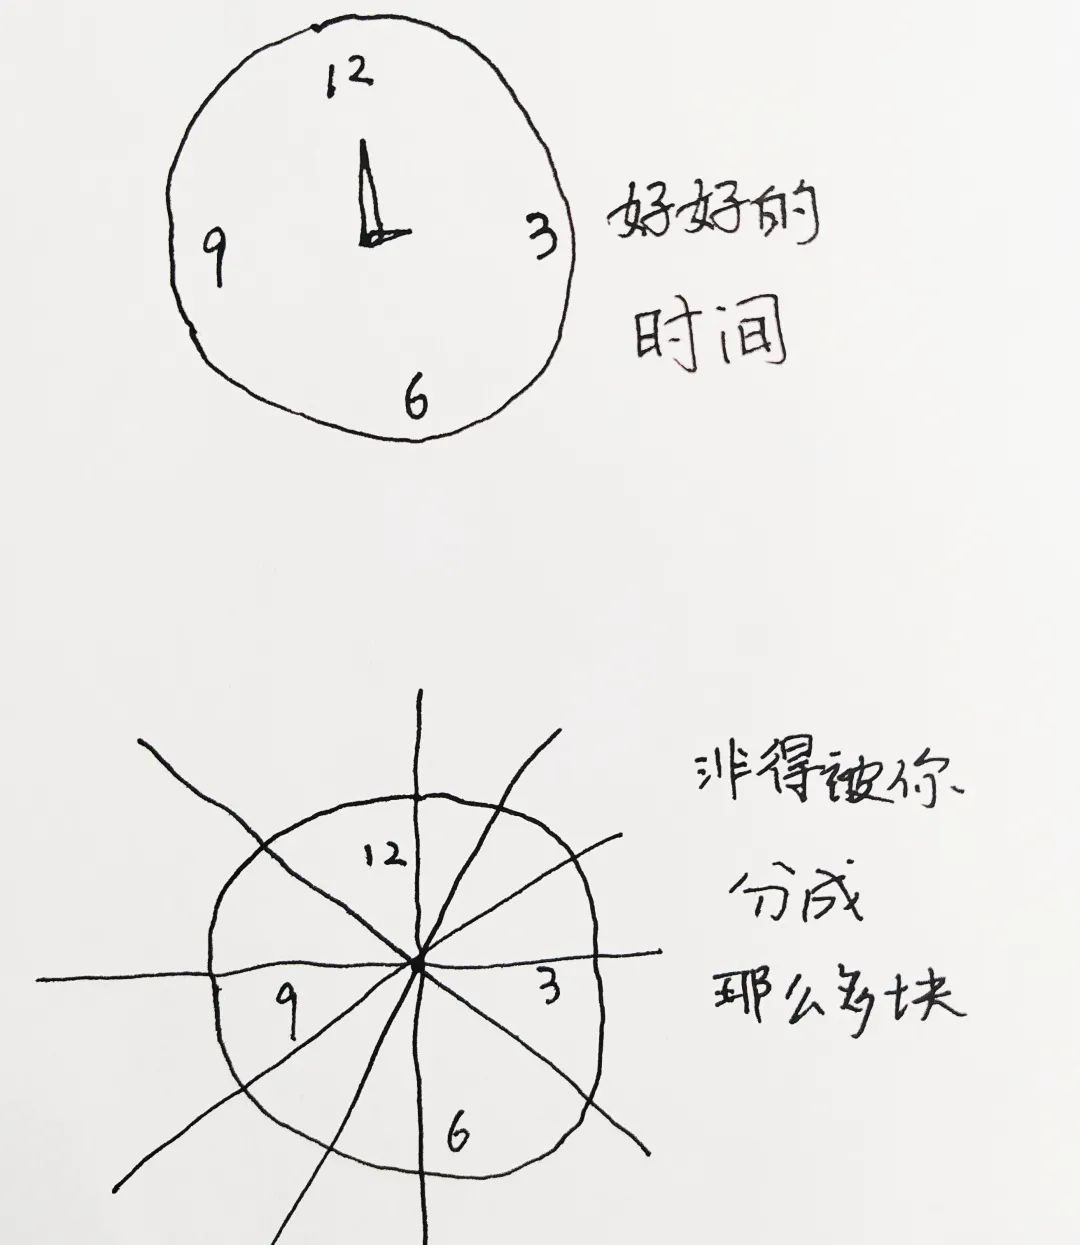 12
9
3
6
好好的
时间
12
9
3
6
非得被你
分成
那么多块